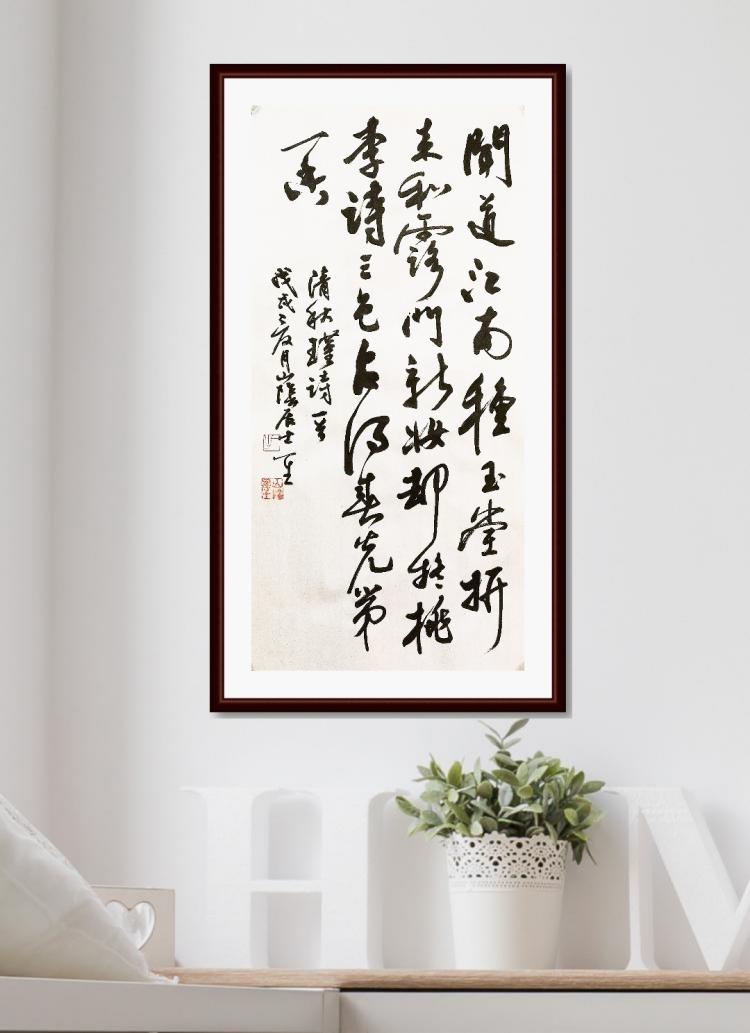 聞道江南種玉堂折
来和露鬥新妝却疑桃
李誇三色占得春光第
一香
清秋瑾詩一首
戊戌之夏月山陰居士
H M